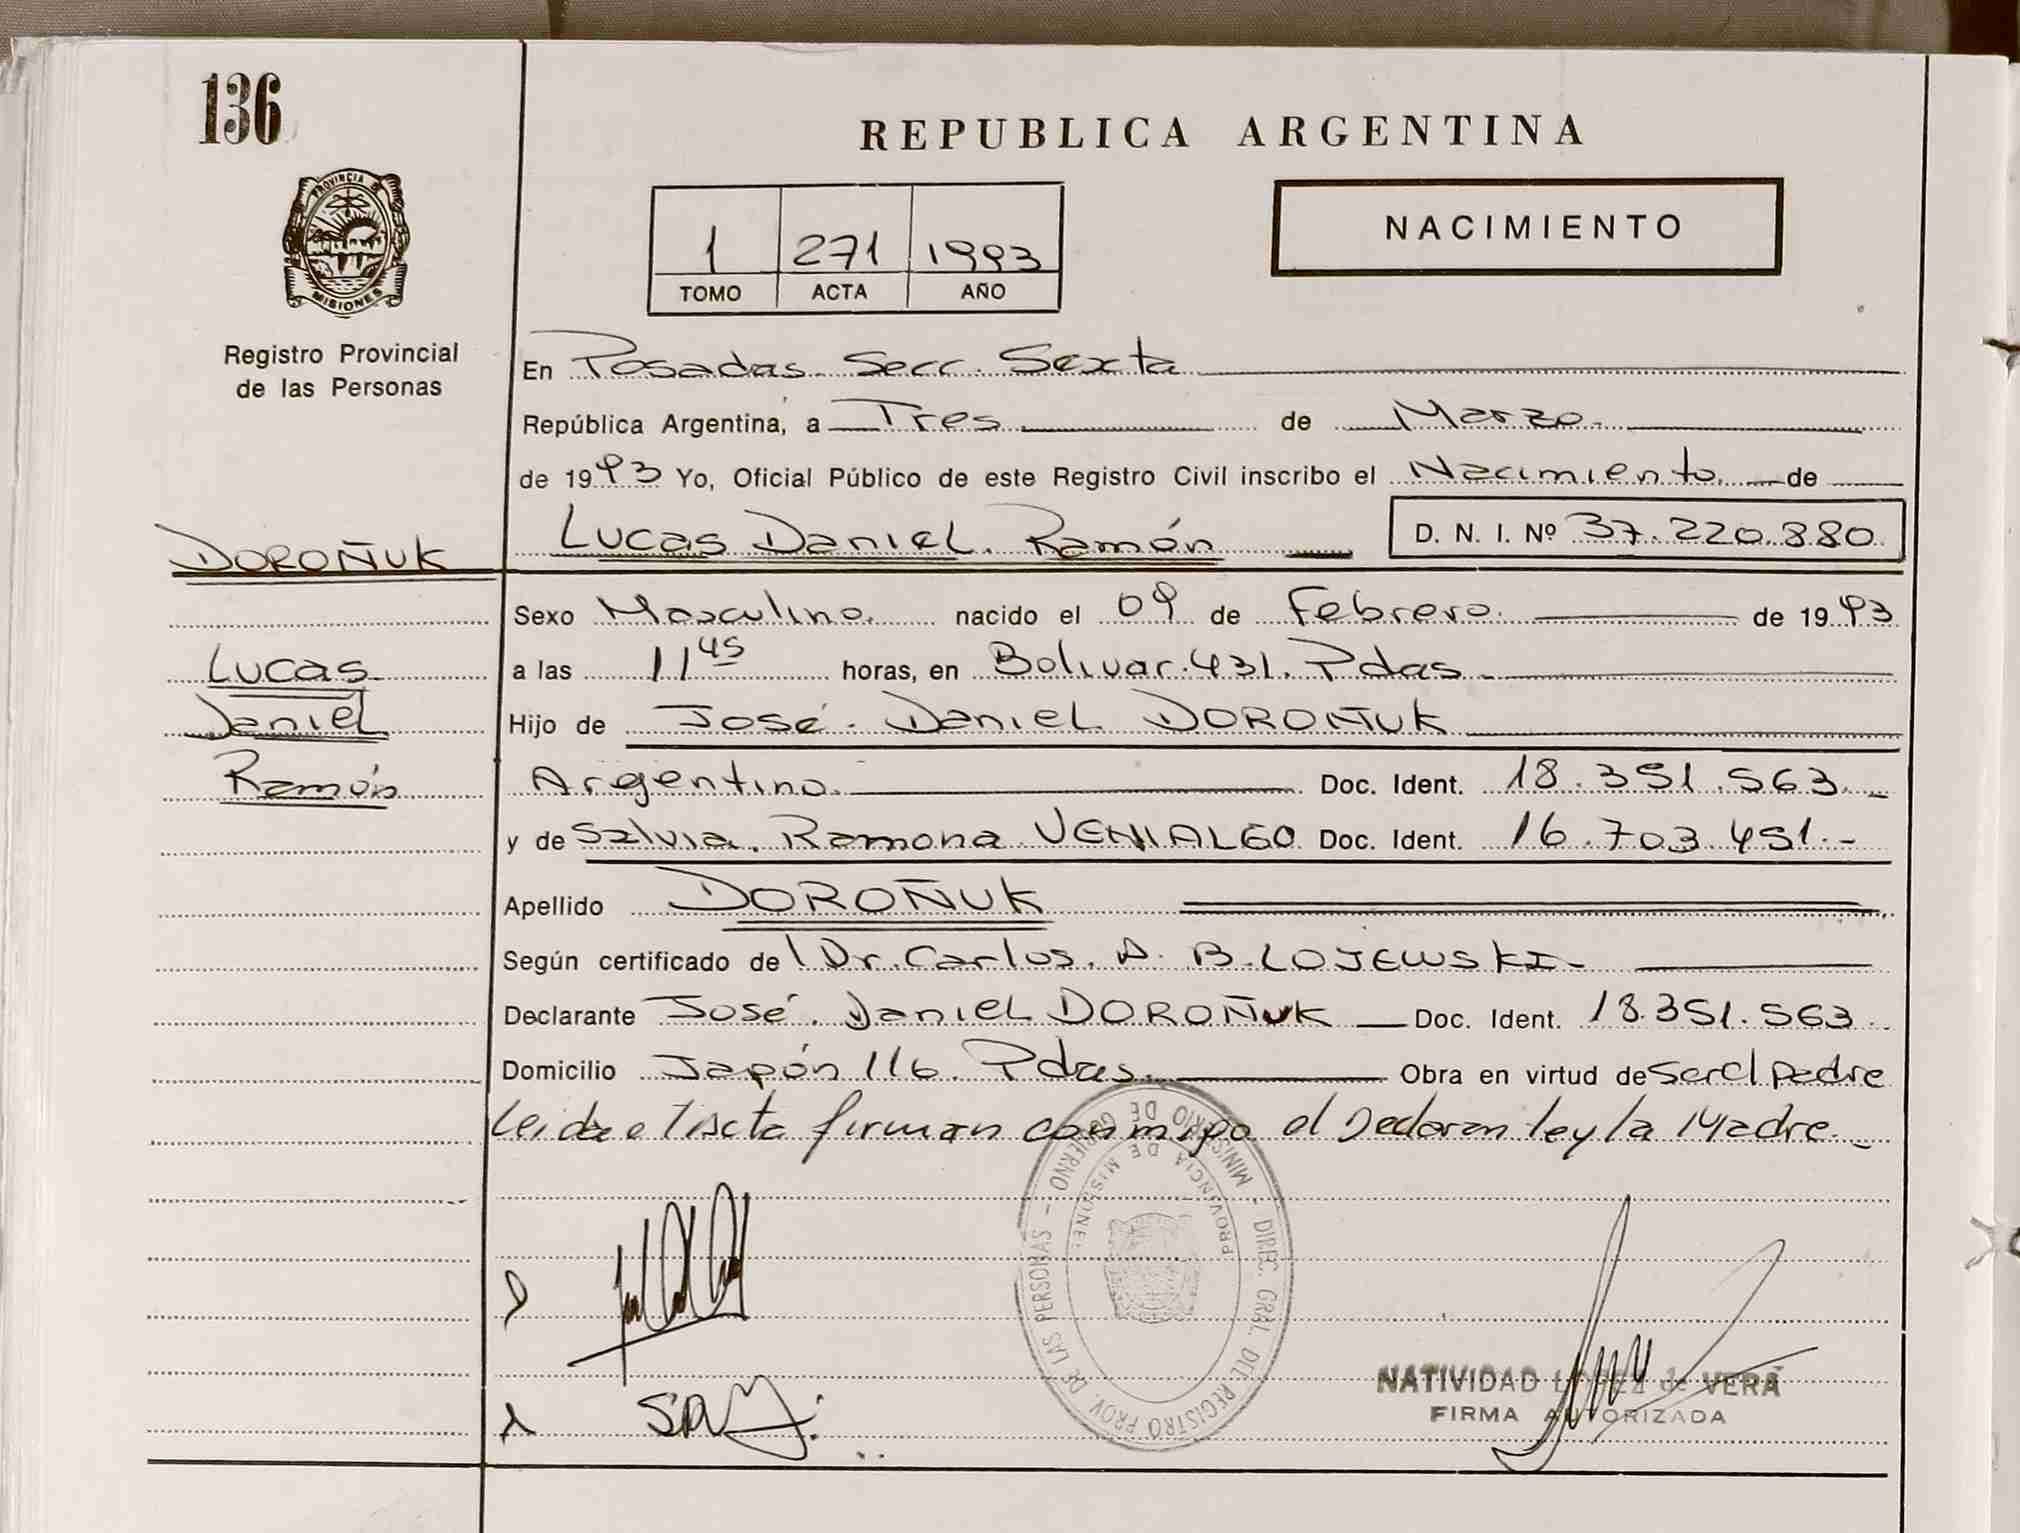 136
REPUBLICA ARGENTINA
PROVINCIA DE
MISIONES
Registro Provincial
de las Personas
1 271 1993
TOMO ACTA AÑO
NACIMIENTO
En Posadas Secc. Sexta
República Argentina, a Tres de Marzo.
de 1993 Yo, Oficial Público de este Registro Civil inscribo el Nacimiento de
DOROÑUK
Lucas Daniel Ramón D. N. I. Nº 37.220.880
Sexo Masculino. nacido el 09 de Febrero. de 1993
Lucas
a las 11 45 horas, en Bolivar.431. Pdas
Daniel
Hijo de José. Daniel DOROÑUK
Ramón
Argentino. Doc. Ident. 18.351.563.-
y de Salvia. Ramona VENIALGO Doc. Ident. 16.703.451.-
Apellido DOROÑUK
Según certificado de Dr. Carlos. A. B. LOJEWSKI-
Declarante José. Daniel DOROÑUK Doc. Ident. 18.351.563.
Domicilio Japón 116. Pdas. Obra en virtud de Ser el padre
Leida el Acta firman conmigo el Declarante y la Madre.-
DIREC. GRAL. DEL REGISTRO PROV. DE LAS PERSONAS - MINISTERIO DE GOBIERNO -
PROVINCIA DE MISIONES
NATIVIDAD LOPEZ de VERA
FIRMA AUTORIZADA